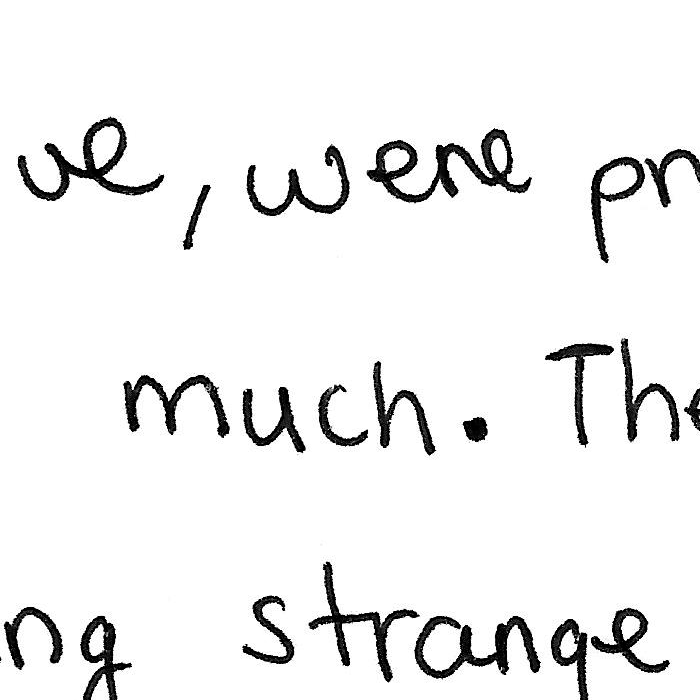 ve, were pr
much. The
ng strange